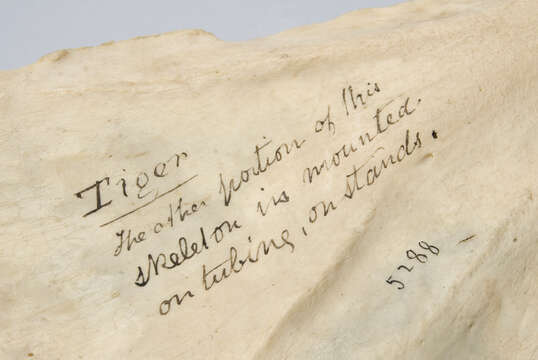 Tiger
The other portion of this
skeleton is mounted.
on tubing, on stands.
5288